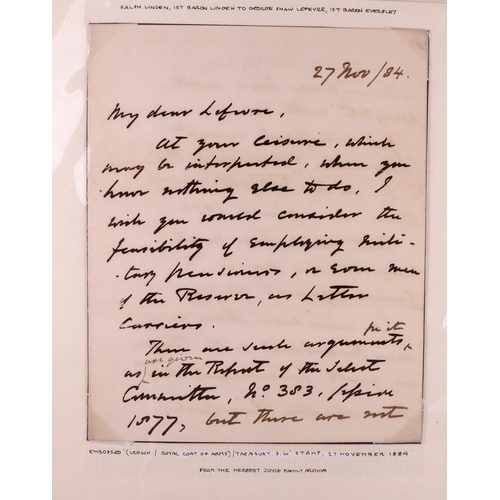 RALPH LINGEN, 1ST BARON LINGEN TO GEORGE SHAW LEFEVRE, 1ST BARON EVERSLEY
27 Nov/84.
My dear Lefevre,
At your leisure, which
may be interpreted, when you
have nothing else to do, I
wish you would consider the
feasibility of employing mili-
-tary pensioners, or even men
of the Reserve, as Letter
Carriers.
There are such arguments
for it
are given
as in the Report of the Select
Committee, No. 383, session
1877, but there are not
EMBOSSED (CROWN / ROYAL COAT OF ARMS)/TREASURY. S.W' STAMP, 27 NOVEMBER 1884
FROM THE HERBERT JOYCE FAMILY ARCHIVE